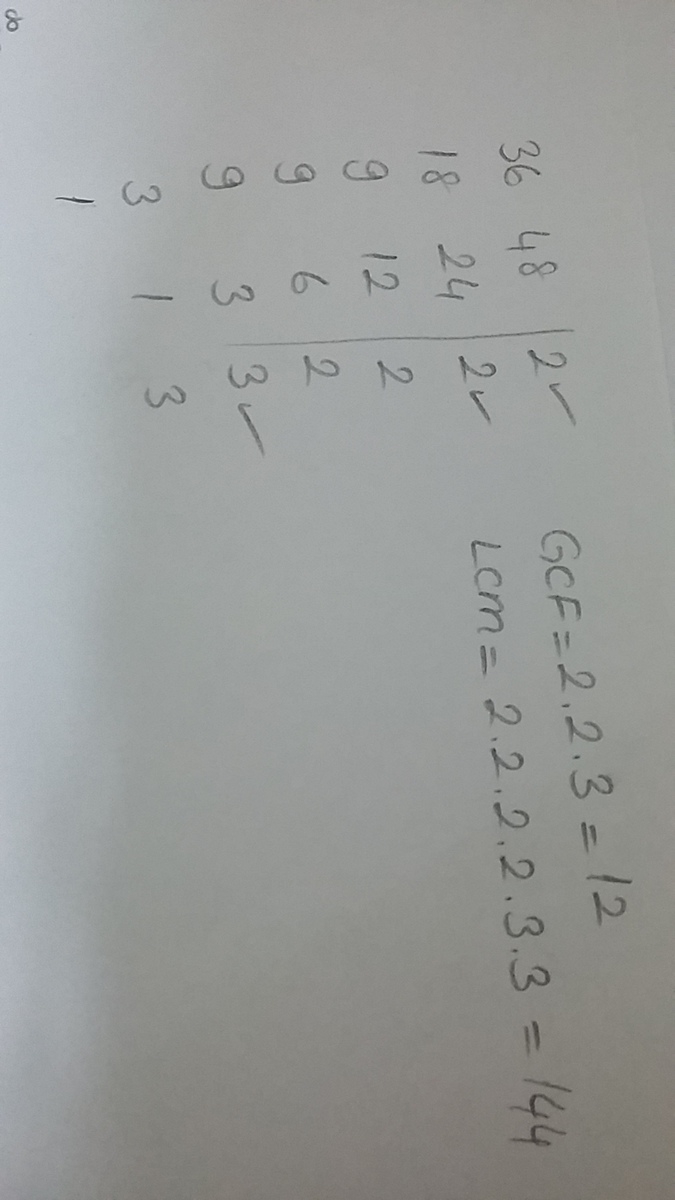 36 48 2✓ GCF = 2.2.3 = 12
18 24 2✓ LCM = 2.2.2.2.3.3 = 144
9 12 2
9 6 2
9 3 3✓
3 1 3
1